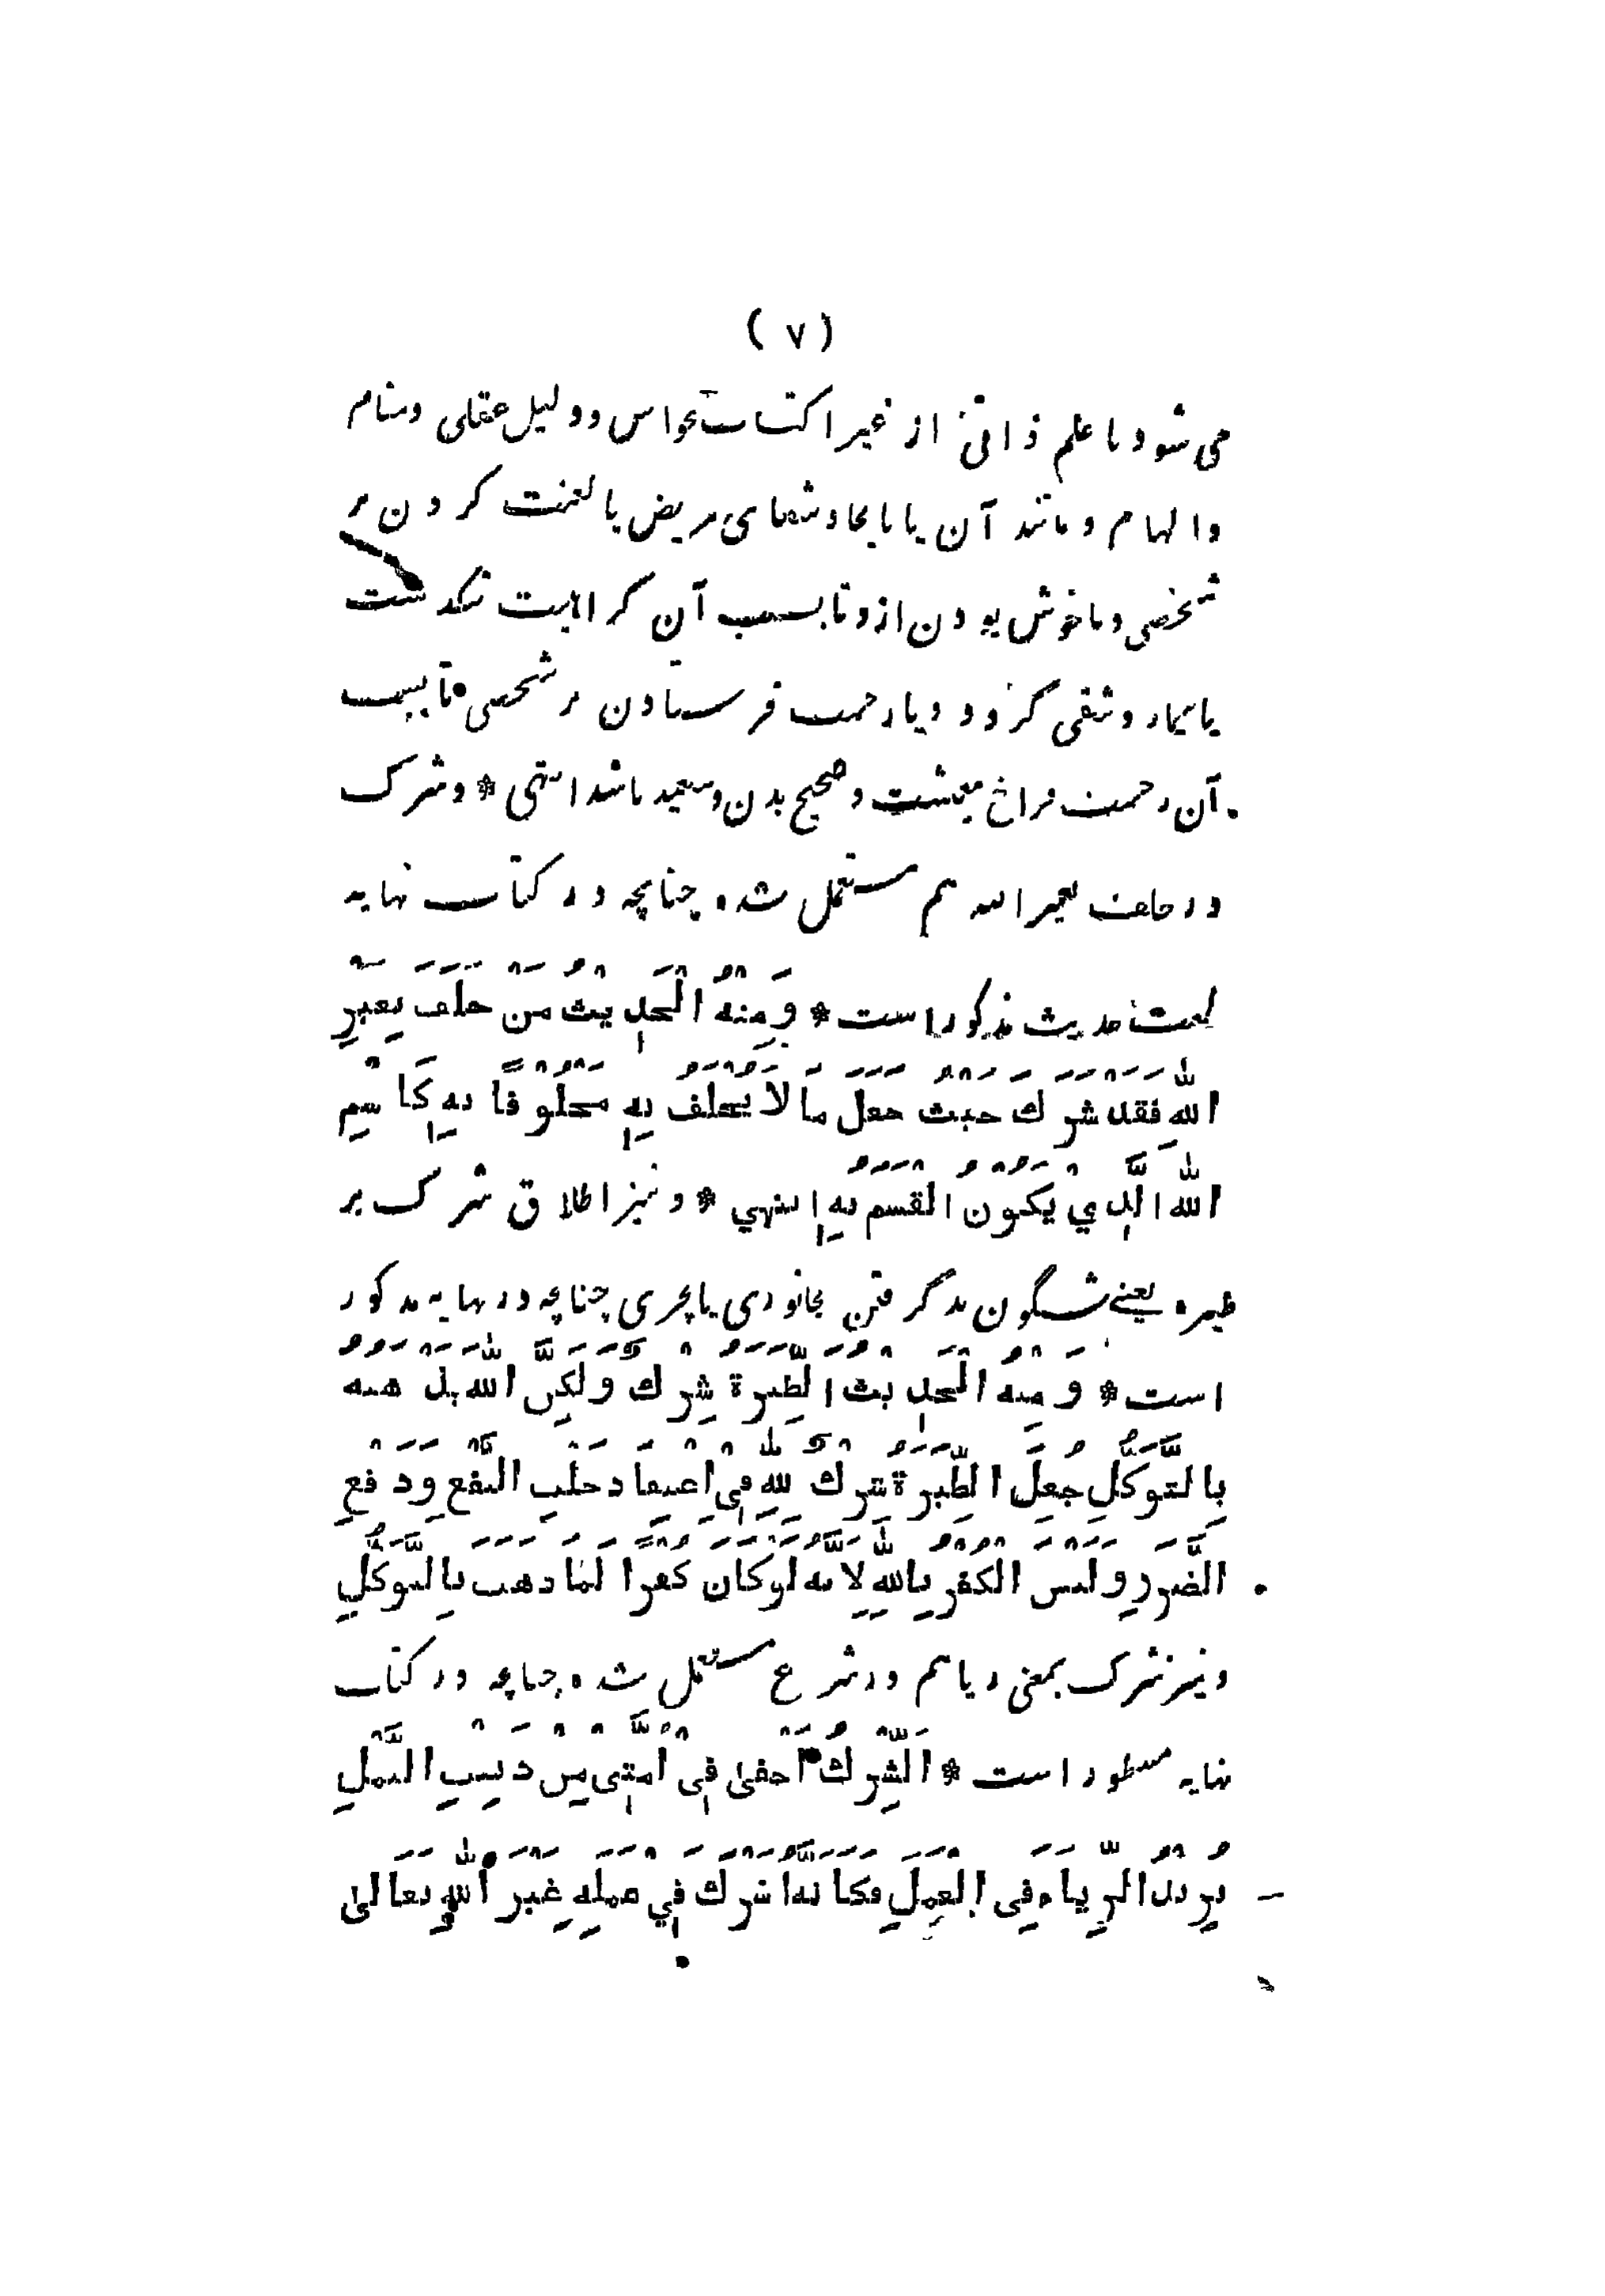 ( ٧ )
می شود یا علم ذاتی از غیر اکتساب بحواس و دلیل عقلی و منام
و الهام و مانند آن یا بایجاد شفای مریض یا لعنت کردن بر
شخصی و ناخوش بودن ازو تا بسبب آن کراهیت تنکدست
یا بیمار و شقی گردد و یا رحمت فرستادن بر شخصی تا بسبب
آن رحمت فراخ معیشت و صحیح بدن و سعید باشد انتهی * و شرک
در حلف بغیر الله هم مستعمل شده چنانچه در کتاب نهایه
لغت حدیث مذکور است * وَمِنْهُ الْحَدِيْثُ مَنْ حَلَفَ بِغَيْرِ
اللهِ فَقَدْ اَشْرَكَ حَيْثُ جَعَلَ مَا لَا يُحْلَفُ بِهٖ مَحْلُوْفًا بِهٖ كَاسْمِ
اللهِ الَّذِيْ يَكُوْنُ الْقَسَمُ بِهٖ انتهي * و نیز اطلاق شرک بر
طیره یعنے شگون بد گرفتن بجانوری یا چیزی چنانچه در نهایه مذکور
است * وَمِنْهُ الْحَدِيْثُ الطِّيَرَةُ شِرْكٌ وَلٰكِنَّ اللهَ يُذْهِبُهُ
بِالتَّوَكُّلِ جَعَلَ الطِّيَرَةَ شِرْكًا لِلّٰهِ فِي اِعْتِقَادِ جَلْبِ النَّفْعِ وَدَفْعِ
الضَّرَرِ وَلَيْسَ الْكُفْرُ بِاللهِ لِاَنَّهُ لَوْ كَانَ كُفْرًا لَمَا ذَهَبَ بِالتَّوَكُّلِ
و نیز شرک بمعنی ریا هم در شرع مستعمل شده چنانچه در کتاب
نهایه مسطور است * اَلشِّرْكُ اَخْفٰى فِيْ اُمَّتِيْ مِنْ دَبِيْبِ النَّمْلِ
يُرِيْدُ الرِّيَاءَ فِى الْعَمَلِ فَكَاَنَّهُ اَشْرَكَ فِيْ عَمَلِهٖ غَيْرَ اللهِ تَعَالىٰ